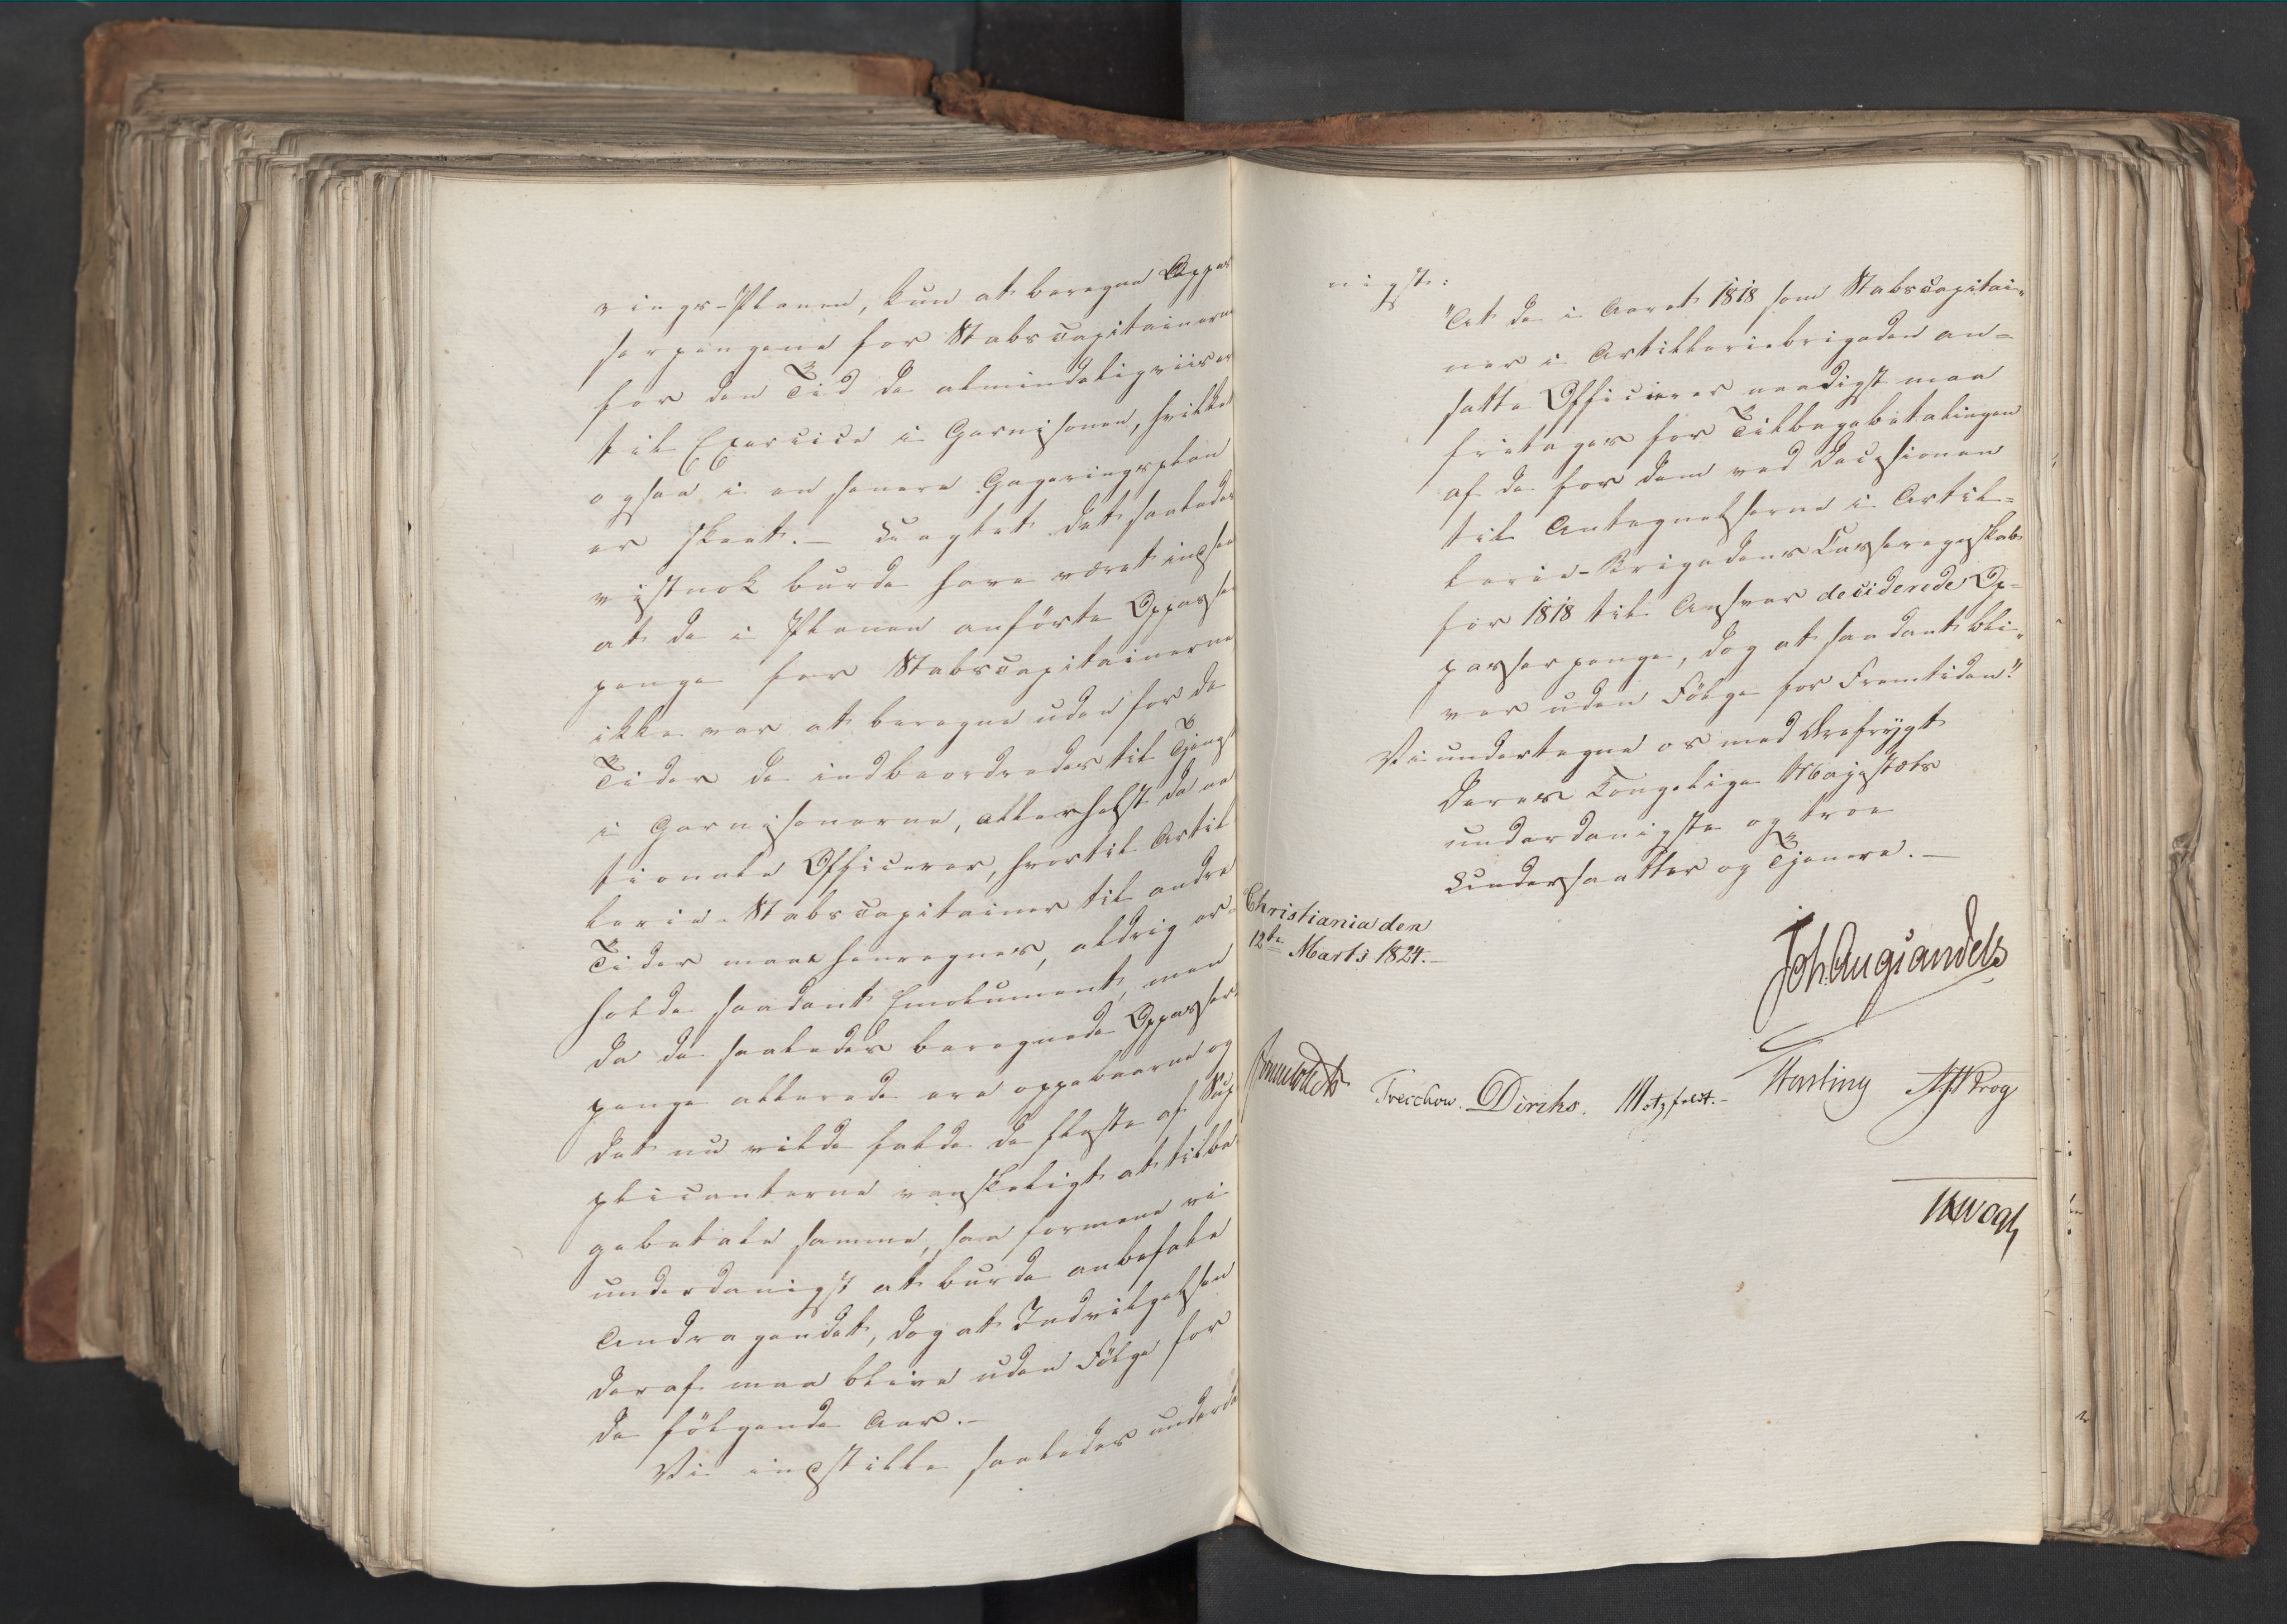 rings-Planen, kun at beregne Oppas
serpengene for Stabscapitainerne
for den Tid de almindeligviis er
til Exercice i Garnisonen, hvilket
ogsaa i en senere Gageringsplan
er skeet. – Uagtet det saaledes
vistnok burde have været indsee
at de i Planen anførte Oppasser
penge for Stabscapitainerne
ikke var at beregne uden for de
Tider de indbeordredes til Tjenest
i Garnisonerne, allerhelst da na
tionale Officerer, hvortil Artil
lerie-Stabscapitainer til andre
Tider maae henregnes, aldrig er-
holde saadant Emolument, men
da de saaledes beregnede Oppasser-
penge allerede ere oppebaarne og
det nu vilde falde de fleste af Sup
plicanterne vanskeligt at tilba
gebetale samme, saa formene vi
underdanigst at burde anbefale
Andragendet, dog at Indvilgelsen
deraf maa blive uden Følge for
de følgende Aar. –
Vi indstille saaledes underda
nigst:
"At de i Aaret 1818 som Stabscapitai„
ner i Artilleriebrigaden an=
satte Officierer naadigst maa
fritages for Tilbagebetalingen
af de for dem ved Decisionen
til Antegnelserne i Artil=
lerie-Brigadens Casseregnskab
for 1818 til Ansvar deciderede Op=
passerpenge, dog at saadant bli„
ver uden Følge for Fremtiden."
Vi undertegne os med Ærefrygt
Deres Kongelige Majestæts
underdanigste og troe
Undersaatter og Tjenere. –
Christiania den
12te Marts 1824. –
Joh. Aug. Sandels
Sommerhielm Treschow. Diriks. Motzfeldt. – Fasting JHKrog
Vogt